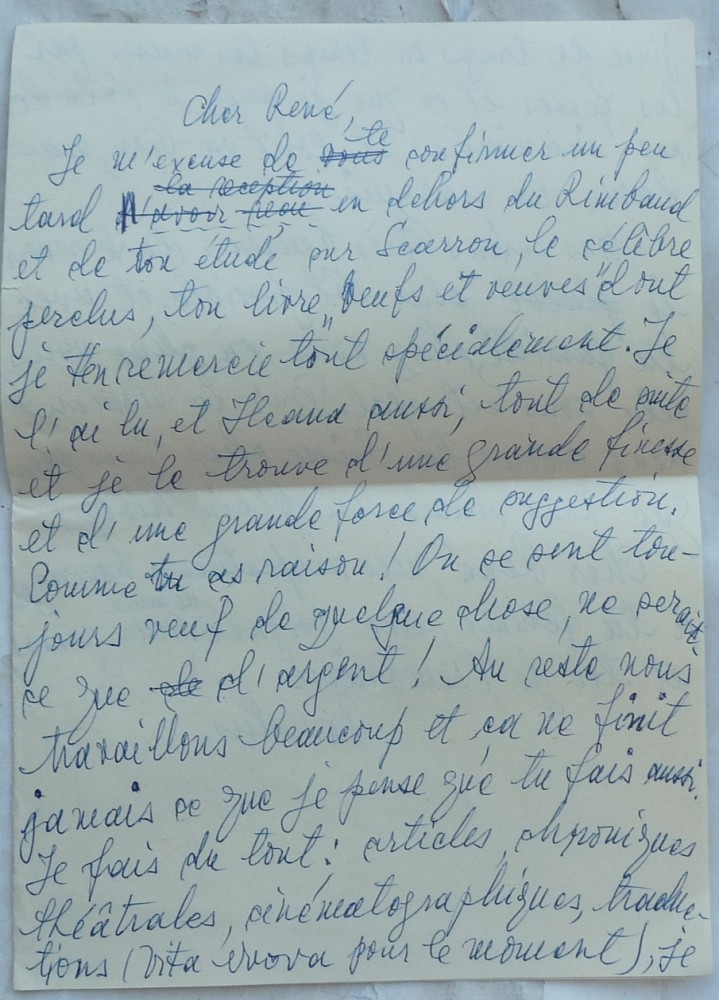 Cher René,
Je m'excuse de te confirmer un peu
tard en dehors du Rimbaud
et de ton étude sur Scarron, le célèbre
perclus, ton livre „Veufs et veuves" dont
je t'en remercie tout spécialement. Je
l'ai lu, et Ileana aussi, tout de suite
et je le trouve d'une grande finesse
et d'une grande force de suggestion.
Comme tu as raison! On se sent tou-
jours veuf de quelque chose, ne serait-
ce que d'argent! Au reste nous
travaillons beaucoup et ça ne finit
jamais ce que je pense que tu fais aussi.
Je fais du tout: articles, chroniques
théâtrales, cinématographiques, traduc-
tions (Vita nova pour le moment), je